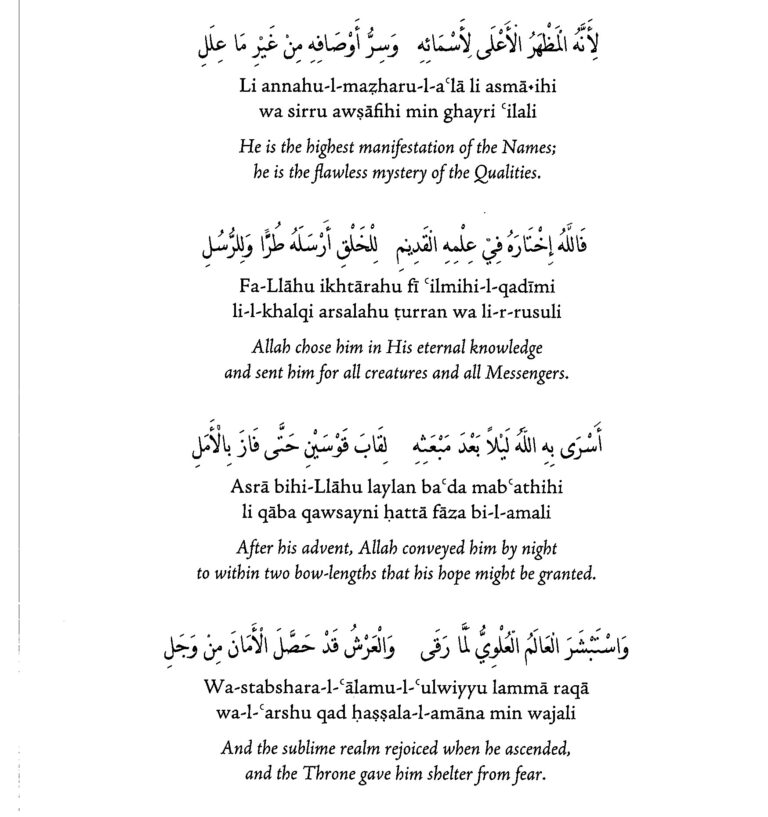 لِأَنَّهُ الْمَظْهَرُ الْأَعْلَى لِأَسْمَائِهِ   وَسِرُّ أَوْصَافِهِ مِنْ غَيْرِ مَا عِلَلِ
Li annahu-l-maẓharu-l-aʿlā li asmā•ihi
wa sirru awṣāfihi min ghayri ʿilali
He is the highest manifestation of the Names;
he is the flawless mystery of the Qualities.
فَاللَّهُ إِخْتَارَهُ فِيْ عِلْمِهِ الْقَدِيمِ   لِلْخَلْقِ أَرْسَلَهُ طُرًّا وَلِلرُّسُلِ
Fa-Llāhu ikhtārahu fī ʿilmihi-l-qadīmi
li-l-khalqi arsalahu ṭurran wa li-r-rusuli
Allah chose him in His eternal knowledge
and sent him for all creatures and all Messengers.
أَسْرَى بِهِ اللَّهُ لَيْلاً بَعْدَ مَبْعَثِهِ   لِقَابَ قَوْسَيْنِ حَتَّى فَازَ بِالْأَمَلِ
Asrā bihi-Llāhu laylan baʿda mabʿathihi
li qāba qawsayni ḥattā fāza bi-l-amali
After his advent, Allah conveyed him by night
to within two bow-lengths that his hope might be granted.
وَاسْتَبْشَرَ الْعَالَمُ الْعُلْوِيُّ لَمَّا رَقَى   وَالْعَرْشُ قَدْ حَصَّلَ الْأَمَانَ مِنْ وَجَلِ
Wa-stabshara-l-ʿālamu-l-ʿulwiyyu lammā raqā
wa-l-ʿarshu qad ḥaṣṣala-l-amāna min wajali
And the sublime realm rejoiced when he ascended,
and the Throne gave him shelter from fear.